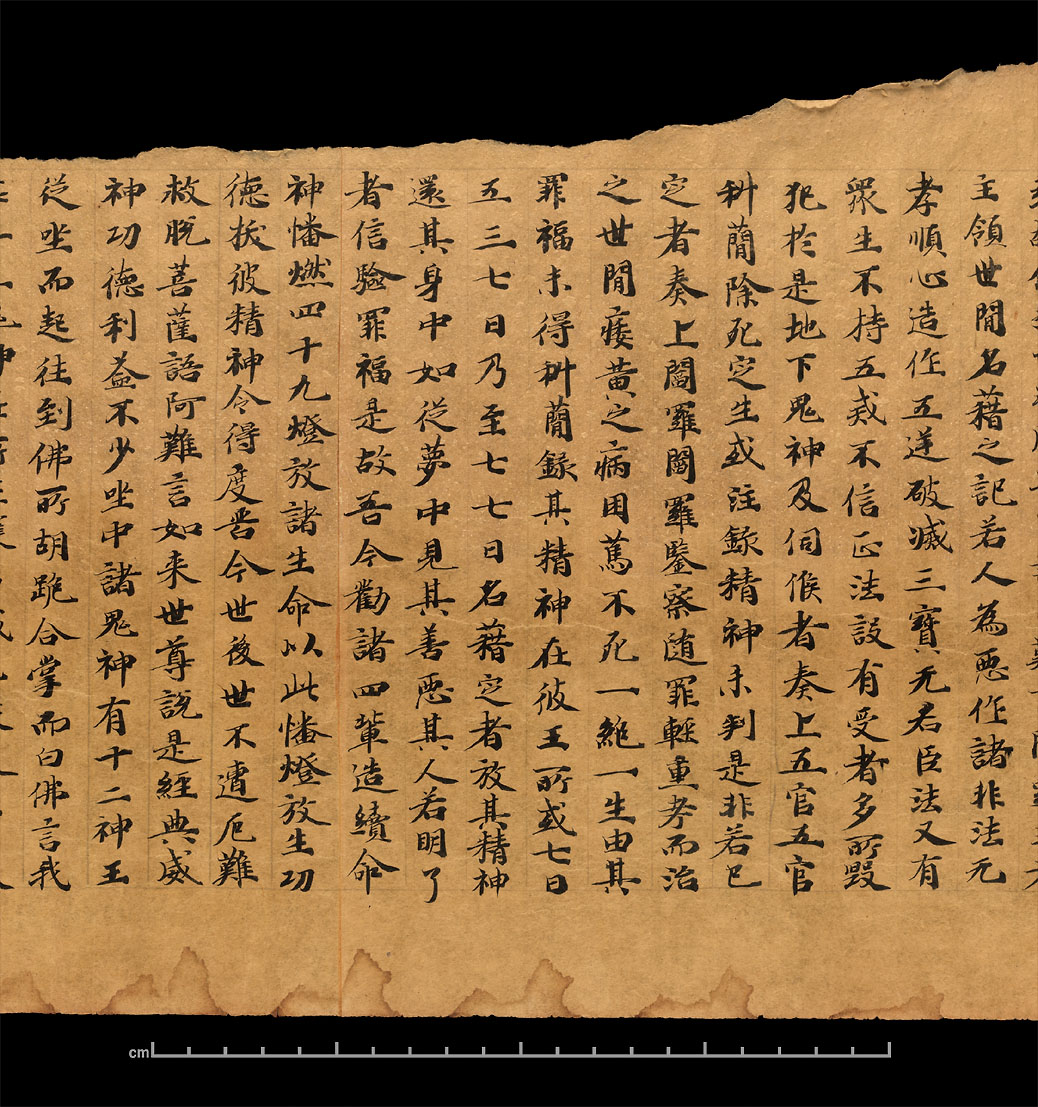 主領世閒名藉之記若人為惡作諸非法无
孝順心造作五逆破滅三寶无君臣法又有
衆生不持五戒不信正法設有受者多所毀
犯於是地下鬼神及伺候者奏上五官五官
斛蕳除死定生或注錄精神未判是非若已
定者奏上閻羅閻羅鑒察随罪輕重考而治
之世閒痿黃之病困萬不死一絕一生由其
罪福未得斛蕳錄其精神在彼王所或七日
五三七日乃至七七日名藉定者放其精神
還其身中如從夢中見其善惡其人若明了
者信驗罪福是故吾今勸諸四輩造續命
神幡燃四十九燈放諸生命以此幡燈放生功
德拔彼精神令得度苦今世後世不遭厄難
救脫菩薩語阿難言如来世尊說是經典威
神功德利益不少坐中諸鬼神有十二神王
從坐而起往到佛所胡跪合掌而白佛言我